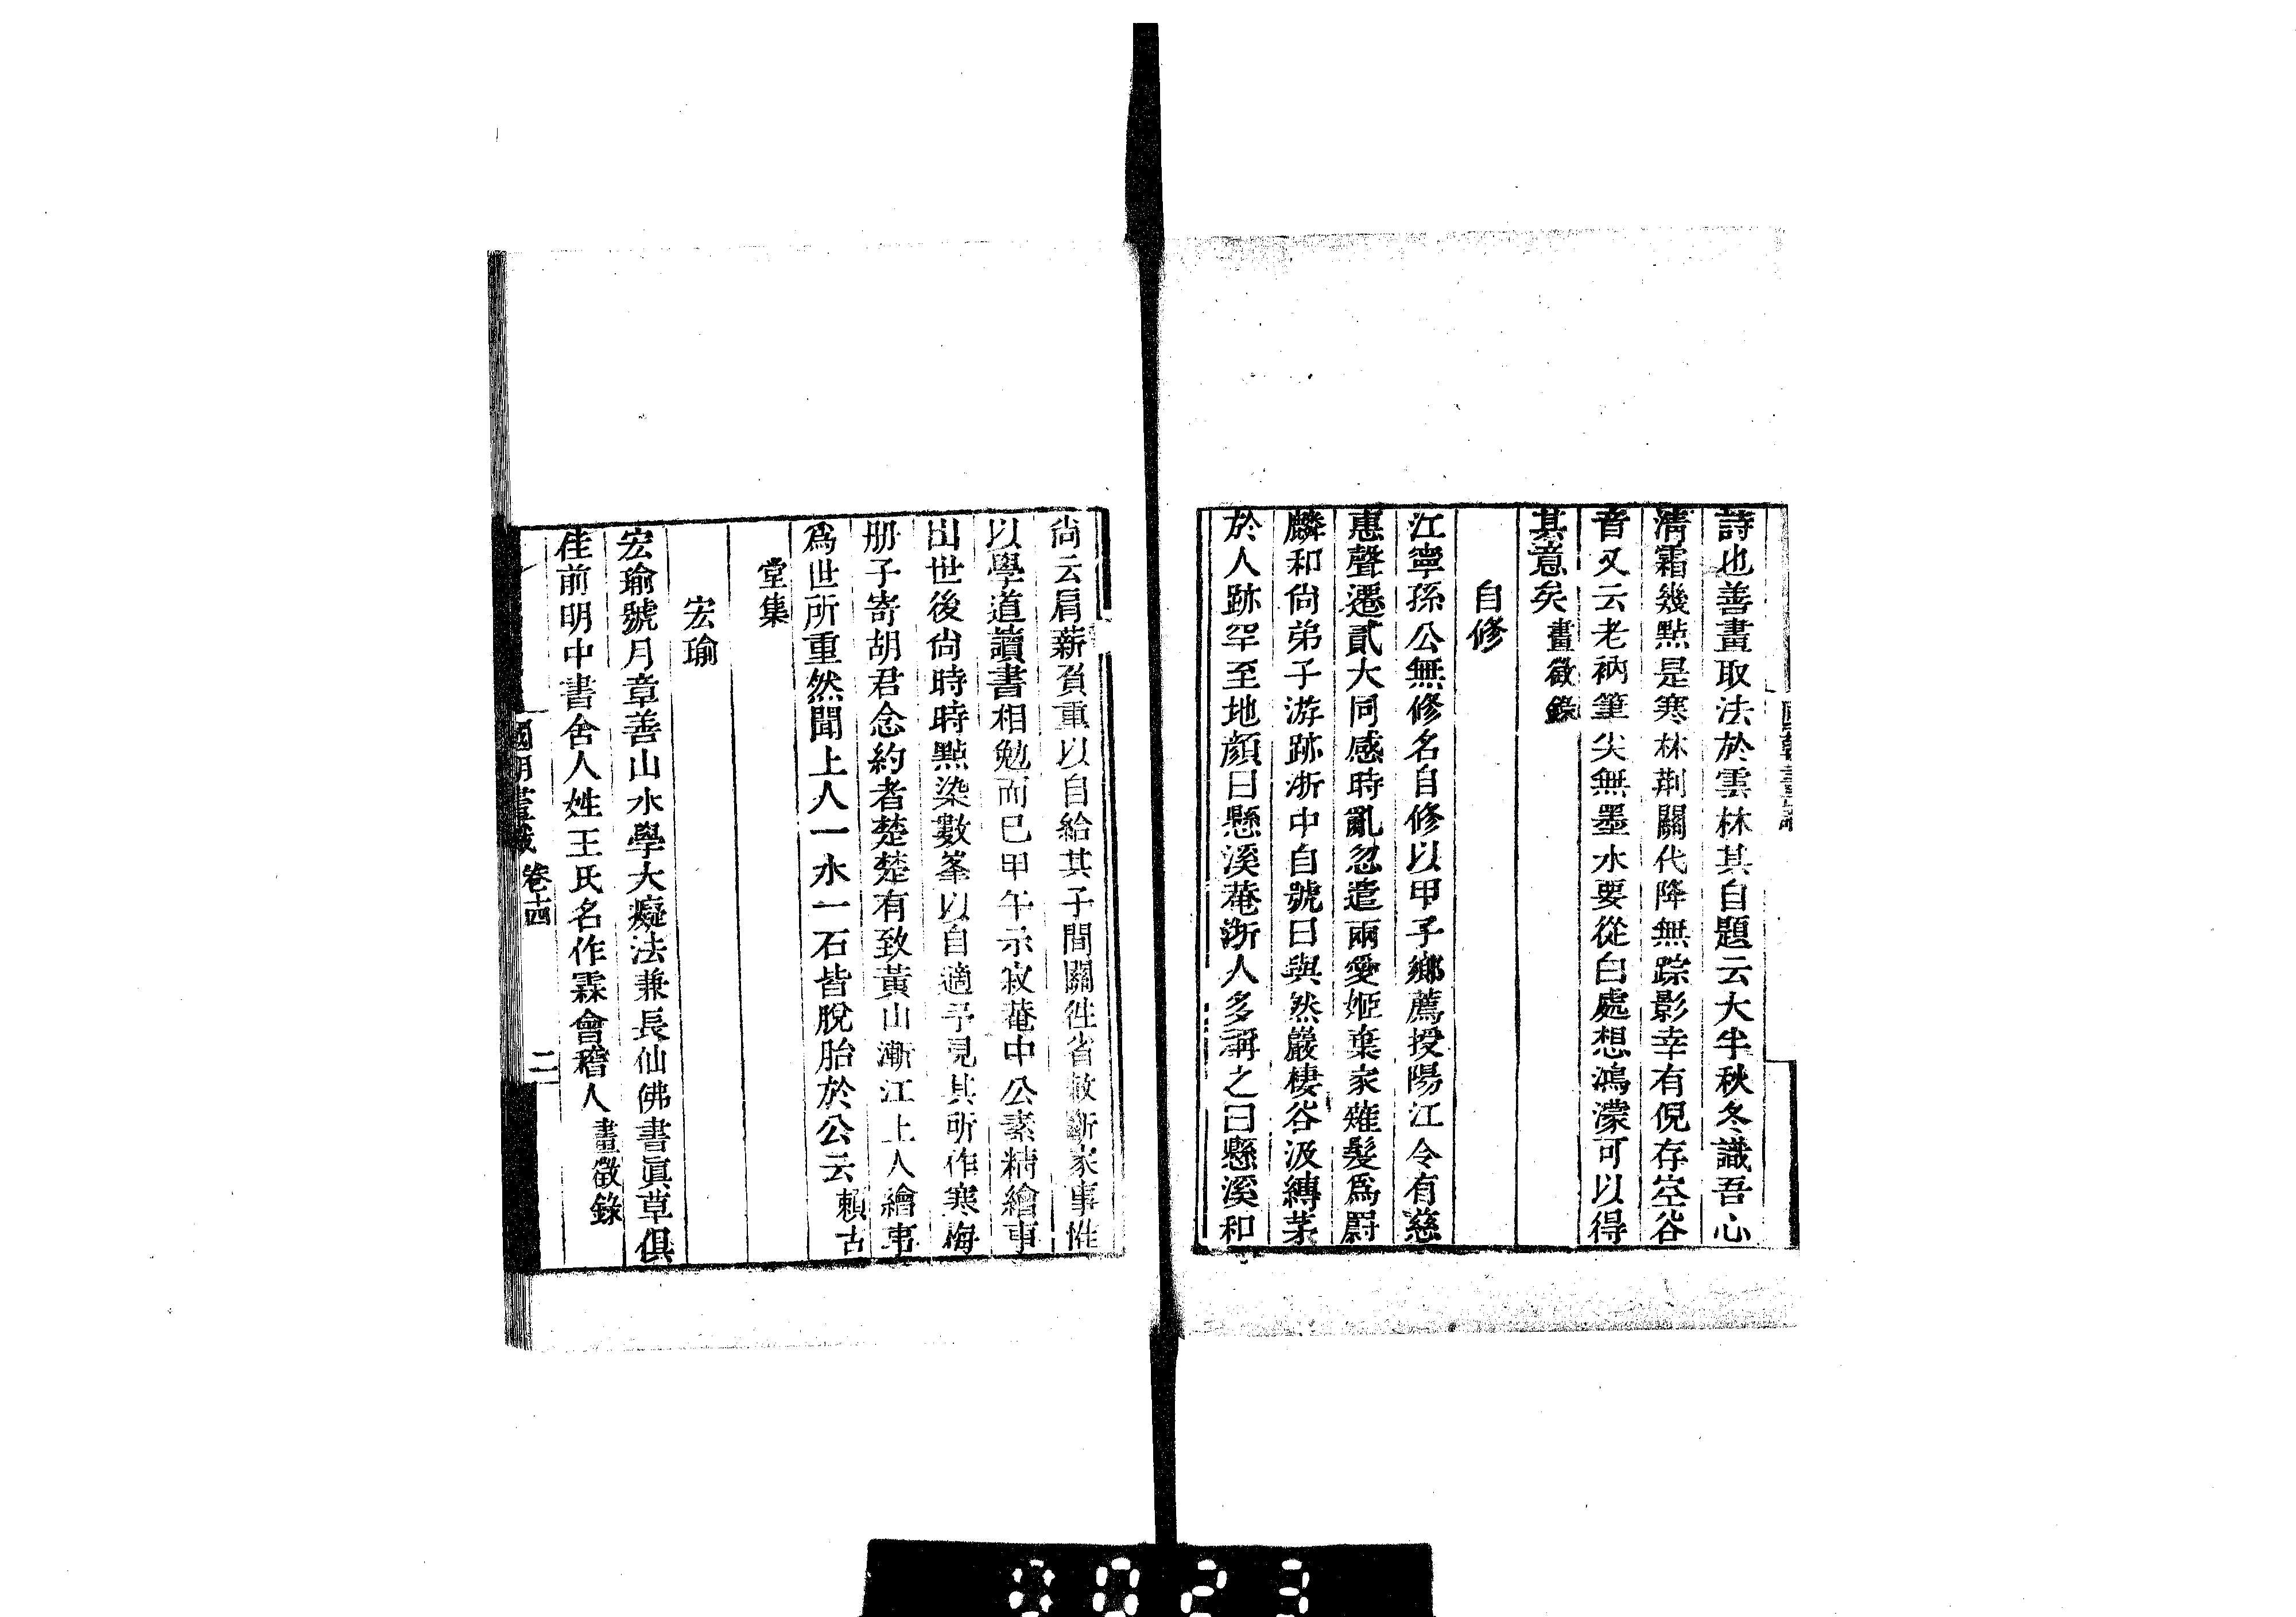 詩也善畫取法於雲林其自題云大半秋冬識吾心
淸霜幾點是寒林荆關代降無踪影幸有倪存空谷
音又云老衲筆尖無墨水要從白處想鴻濛可以得
其意矣畫徵錄
自修
江寧孫公無修名自修以甲子鄉薦授陽江令有慈
惠聲遷貳大同感時亂忽遣兩愛姬棄家薙髮爲罽
麟和尙弟子游跡浙中自號曰與然巖棲谷汲縛茅
於人跡罕至地顏曰懸溪菴浙人多稱之曰懸溪和
尙云肩薪負重以自給其子間關徃省敕斷家事惟
以學道讀書相勉而已甲午示寂菴中公素精繪事
出世後尙時時點染數峯以自適予見其所作寒梅
册子寄胡君念約者楚楚有致黃山漸江上人繪事
爲世所重然聞上人一水一石皆脫胎於公云賴古
堂集
宏瑜
宏瑜號月章善山水學大癡法兼長仙佛書眞草俱
佳前明中書舍人姓王氏名作霖會稽人畫徵錄
國朝畫識 卷十四 二